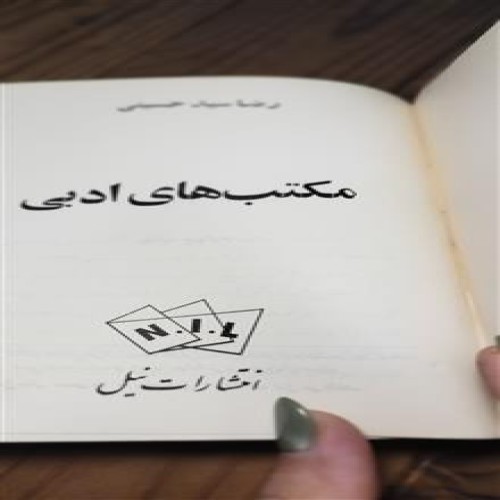 رضا سید حسینی
مکتب‌های ادبی
N.I.L
انتشارات نیل